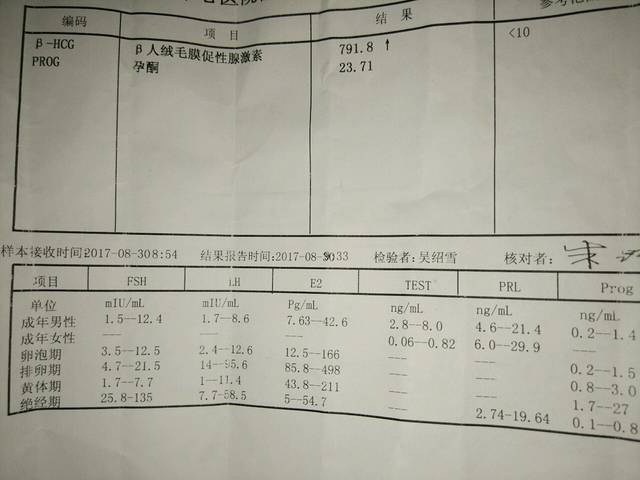 编码 项目 结果
β-HCG β人绒毛膜促性腺激素 791.8 ↑ <10
PROG 孕酮 23.71
样本接收时间:2017-08-30 8:54 结果报告时间:2017-08-30 9:33 检验者:吴绍雪 核对者:
项目 FSH LH E2 TEST PRL Prog
单位 mIU/mL mIU/mL Pg/mL ng/mL ng/mL ng/mL
成年男性 1.5--12.4 1.7--8.6 7.63--42.6 2.8--8.0 4.6--21.4 0.2--1.4
成年女性 --- --- --- 0.06--0.82 6.0--29.9 ---
卵泡期 3.5--12.5 2.4--12.6 12.5--166 --- --- 0.2--1.5
排卵期 4.7--21.5 14--95.6 85.8--498 --- --- 0.8--3.0
黄体期 1.7--7.7 1--11.4 43.8--211 --- --- 1.7--27
绝经期 25.8-135 7.7-58.5 5--54.7 --- 2.74-19.64 0.1--0.8